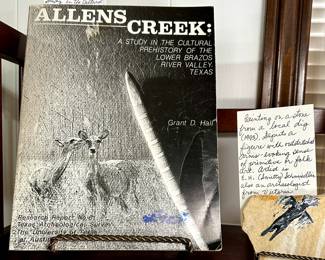 ALLENS
CREEK:
A STUDY IN THE CULTURAL
PREHISTORY OF THE
LOWER BRAZOS
RIVER VALLEY,
TEXAS
Grant D. Hall
Research Report No. 61
Texas Archeological Survey
The University of Texas
at Austin
Painting on a stone
from a local dig
(1995), depicts a
figure with outstretched
arms - looking sense
of primitive or folk
art. Artist is
E. H. (Smitty) Schmiedlin
also an archeologist
from Victoria